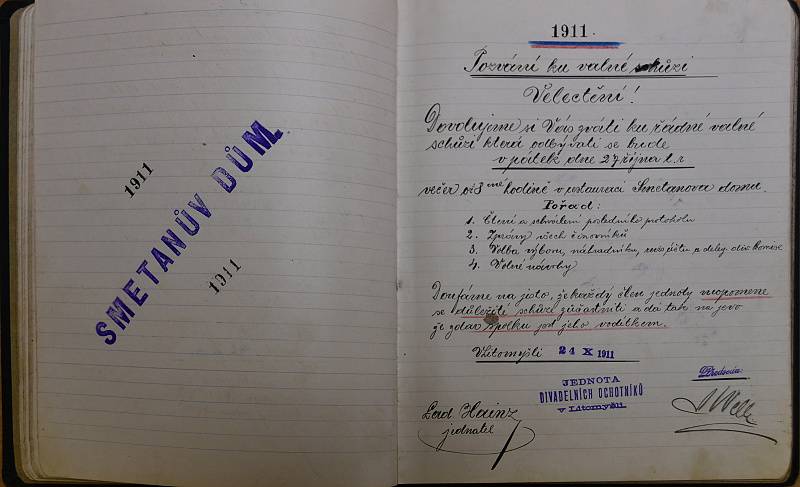 1911
SMETANŮV DŮM.
1911
1911.
Pozvání ku valné schůzi
Velectění!
Dovolujeme si Vás zváti ku řádné valné
schůzi která odbývati se bude
v pátek dne 27 října t. r.
večer o 8 mé hodině v restauraci Smetanova domu.
Pořad:
1. Čtení a schválení posledního protokolu
2. Zprávy všech činovníků
3. Volba výboru, náhradníků, a deleg.
4. Volné návrhy
Doufáme na jisto, že každý člen jednoty neopomene
se důležité schůze zúčastniti a dá tak na jevo
že zdar spolku jest jeho vodítkem.
V Litomyšli 24 X 1911
JEDNOTA
DIVADELNÍCH OCHOTNÍKŮ
v Litomyšli
Předseda:
Lad. Hainz
jednatel